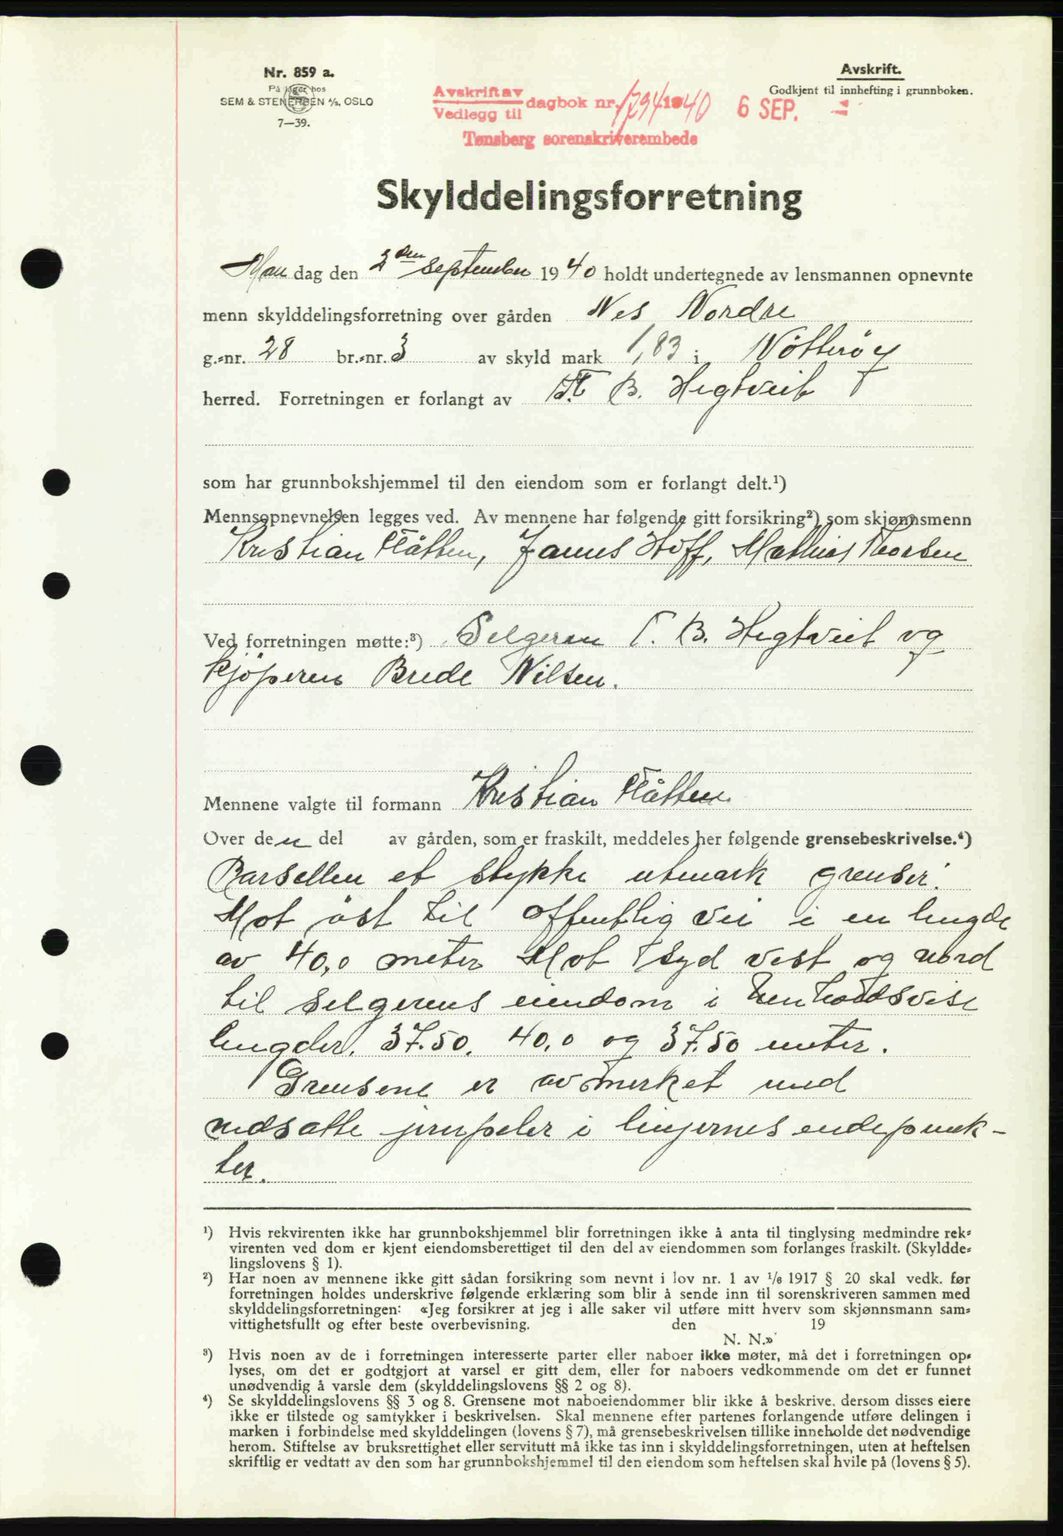 Nr. 859 a.
På lager hos
SEM & STENERSEN A/S, OSLO
7—39.
Avskrift av
Vedlegg til
dagbok nr. 1794 1940
6 SEP.
Tønsberg sorenskriverembede
Avskrift.
Godkjent til innhefting i grunnboken.
Skylddelingsforretning
Man dag den 2den september 1940 holdt undertegnede av lensmannen opnevnte
menn skylddelingsforretning over gården Nes Nordre
g.-nr. 28 br.-nr. 3 av skyld mark 1,83 i Nötterøy
herred. Forretningen er forlangt av T. B. Hegtveit
som har grunnbokshjemmel til den eiendom som er forlangt delt.¹)
Mennsopnevnelsen legges ved. Av mennene har følgende gitt forsikring²) som skjønnsmenn
Kristian Flåtten, James Hoff, Mathias Thorsen
Ved forretningen møtte:³) Selgeren T. B. Hegtveit og
kjöperen Brede Nilsen.
Mennene valgte til formann Kristian Flåtten
Over den del av gården, som er fraskilt, meddeles her følgende grensebeskrivelse.⁴)
Parsellen et stykke utmark grenser:
Mot öst til offentlig vei i en lengde
av 40,0 meter Mot syd vest og nord
til selgerens eiendom i henholdsvise
lengder. 37.50. 40,0 og 37.50 meter.
Grensene er avmerket med
nedsatte jernpeler i linjernes endepunk-
ter.
¹) Hvis rekvirenten ikke har grunnbokshjemmel blir forretningen ikke å anta til tinglysing medmindre rek-
virenten ved dom er kjent eiendomsberettiget til den del av eiendommen som forlanges fraskilt. (Skyldde-
lingslovens § 1).
²) Har noen av mennene ikke gitt sådan forsikring som nevnt i lov nr. 1 av 1/6 1917 § 20 skal vedk. før
forretningen holdes underskrive følgende erklæring som blir å sende inn til sorenskriveren sammen med
skylddelingsforretningen: «Jeg forsikrer at jeg i alle saker vil utføre mitt hverv som skjønnsmann sam-
vittighetsfullt og efter beste overbevisning. den 19
N. N.»
³) Hvis noen av de i forretningen interesserte parter eller naboer ikke møter, må det i forretningen op-
lyses, om det er godtgjort at varsel er gitt dem, eller for naboers vedkommende om det er funnet
unødvendig å varsle dem (skylddelingslovens §§ 2 og 8).
⁴) Se skylddelingslovens §§ 3 og 8. Grensene mot naboeiendommer blir ikke å beskrive, dersom disses eiere
ikke er tilstede og samtykker i beskrivelsen. Skal mennene efter partenes forlangende utføre delingen i
marken i forbindelse med skylddelingen (lovens § 7), må grensebeskrivelsen tillike inneholde det nødvendige
herom. Stiftelse av bruksrettighet eller servitutt må ikke tas inn i skylddelingsforretningen, uten at heftelsen
skriftlig er vedtatt av den som har grunnbokshjemmel til den eiendom som heftelsen skal hvile på (lovens § 5).